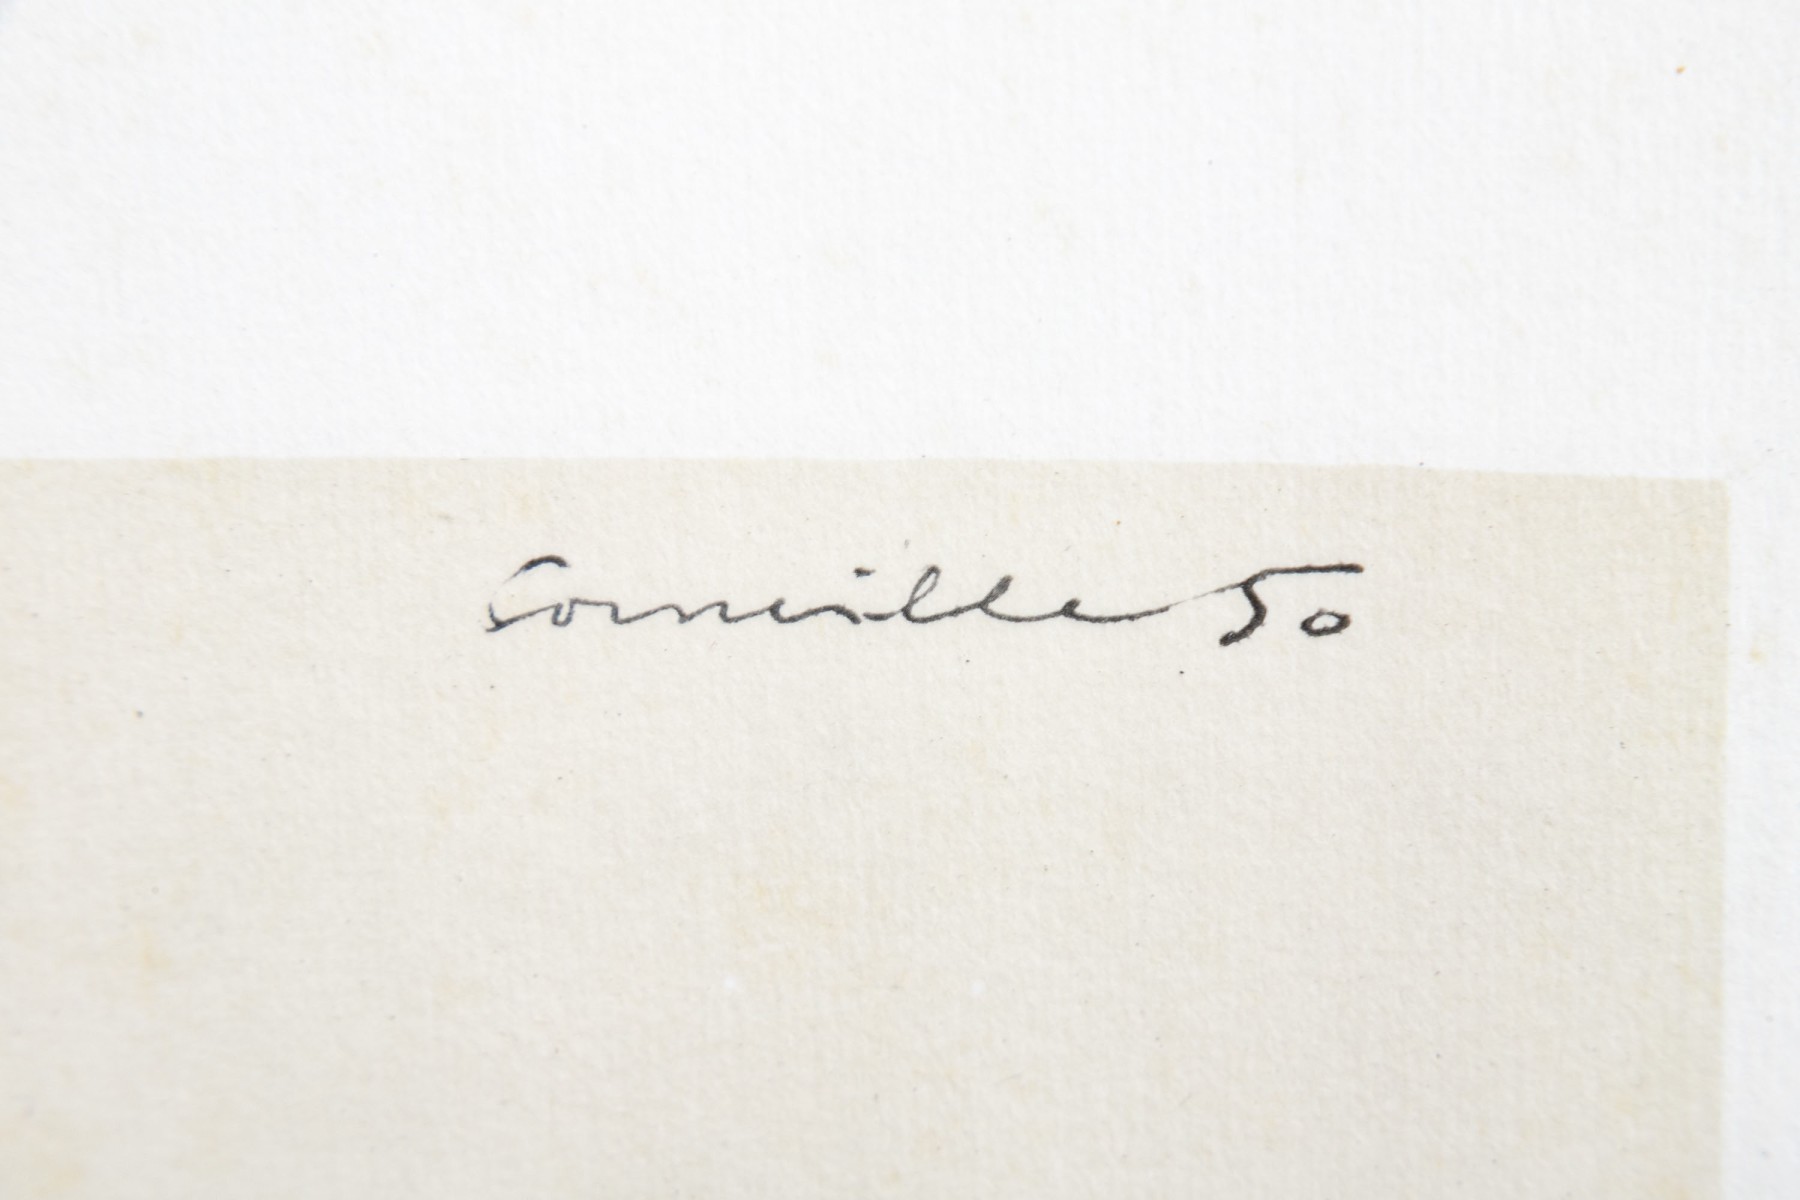 Corneille 50